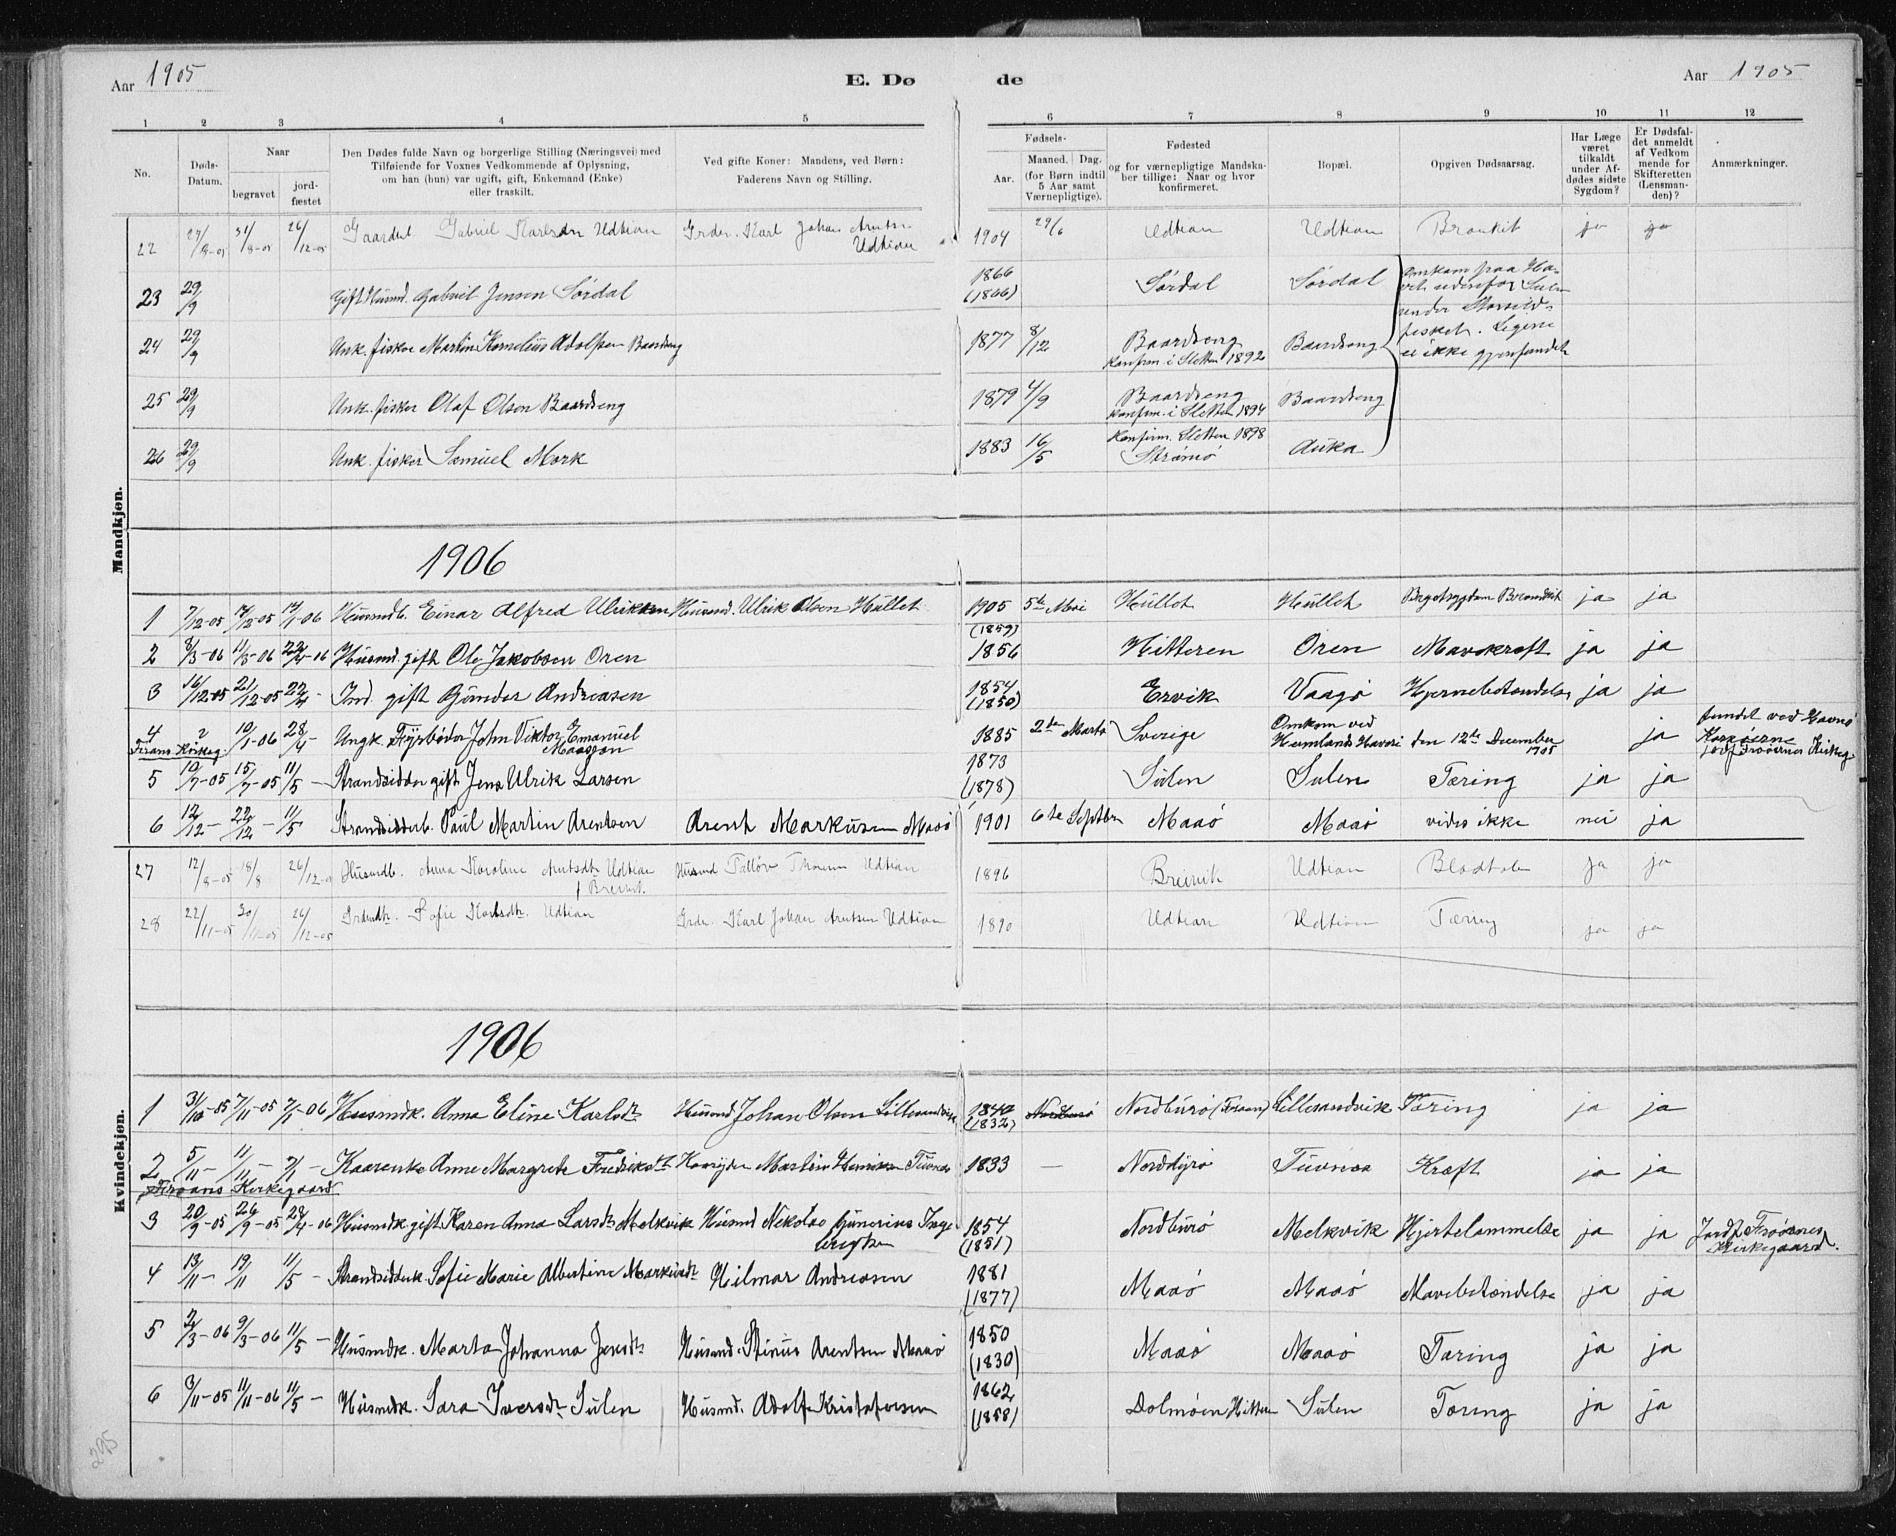 Aar 1905
E. Dø de
Aar 1905
1 2 3 4 5 6 7 8 9 10 11 12
No.
Døds-Datum.
Naar
begravet
jord-fæstet
Den Dødes fulde Navn og borgerlige Stilling (Næringsvei) med
Tilføiende for Voxnes Vedkommende af Oplysning,
om han (hun) var ugift, gift, Enkemand (Enke)
eller fraskilt.
Ved gifte Koner: Mandens, ved Børn:
Faderens Navn og Stilling.
Fødsels-
Aar.
Maaned. Dag.
(for Børn indtil
5 Aar samt
Værnepligtige).
Fødested
og for værnepligtige Mandska-
ber tillige: Naar og hvor
konfirmeret.
Bopæl.
Opgiven Dødsaarsag.
Har Læge
været
tilkaldt
under Af-
dødes sidste
Sygdom?
Er Dødsfal-
det anmeldt
af Vedkom
mende for
Skifteretten
(Lensman-
den)?
Anmærkninger.
Mandkjøn.
22 31/8-05 26/12-05 Gabriel Karlsen Udtian Karl Johan Arntsen Udtian 1904 29/6 Udtian Udtian Bronkit ja ja
23 29/9 Gift Husmd. Gabriel Jensen Sørdal 1866 (1866) Sørdal Sørdal
24 29/9 Unk. fisker Martin Kornelius Adolfsen Baardseng 1877 8/12 Baardseng Konfirm. i Sletten 1892 Baardseng
25 29/9 Unk. fisker Olaf Olsen Baardseng 1879 4/9 Baardseng Konfirm. i Sletten 1894 Baardseng
26 29/9 Unk. fisker Samuel Mork 1883 16/5 Konfirm. Sletten 1898 Strømø Auka
Omkom paa Ha-
vet udenfor Sulen
under Storsild-
fisket. Ligene
ei ikke gjenfundet
1906
1 7/12-05 17/12-05 Husmdb. Einar Alfred Ulriksen Husmd. Ulrik Olsen Hullet 1905 5te Mai Hullet Hullet ja ja
2 8/3-06 11/3-06 22/4-06 Husmd. gift Ole Jakobsen Oren (1859) 1856 Hitteren Oren Mavekræft ja ja
3 16/12-05 21/12-05 22/4- Ind. gift Gunder Andreasen 1854 (1850) Ervik Vaagø Hjernebetændelse ja ja
4 Froans Kirkeg. 10/1-06 28/4- Ungk. Fyrbøder John Viktor Emanuel Maasson 1885 2den Marts Sverige Omkom ved Hemlands Havari den 12te December 1905 ja fundet ved Havnø Jordf. Froøernes Kirkeg
5 10/7-05 15/7-05 11/5 - Strandsidder gift Jens Ulrik Larsen 1873 (1878) Sulen Sulen Tæring ja ja
6 12/12- 22/12- 11/5 Strandsidderb. Paul Martin Arentsen Arent Markusen Maaø 1901 6te Septbr Maaø Maaø vides ikke nei ja
27 12/8-05 18/8 26/12-05 Husmdb. Anna Karoline Arntsdtr Udtian / Breivik. Husmd Udtian 1896 Breivik Udtian ja ja
28 22/11-05 30/11-05 26/12-05 Sofie Karlsdtr. Udtian Karl Johan Arntsen Udtian 1890 Udtian Udtian Tæring ja ja
1906
Kvindekjøn.
1 31/10-05 7/11-05 7/1-06 Husmdk. Anna Eline Karlsdtr Husmd Johan Olsen Lillesandvik 1842 (1832) Nordburø Nordburø (Froan) Lillesandvik Tæring ja ja
2 5/11- 11/11- 7/1- Kaarenke Anne Margrete Fredriksdtr Martin Henriksen Tuvnæs 1833 - Norddyrø Tuvnæs Kræft ja ja
Froans Kirkegaard
3 20/9-05 26/9-05 28/4-06 Husmdk gift Karen Anna Larsdtr Melkvik Husmd Nekolas Gunerius Inge-brigtsen 1854 (1851) Nordburø Melkvik Hjertelammelse ja ja Jordf. Froøernes Kirkegaard.
4 13/11- 19/11 11/5 - Strandsidderk Sofie Marie Albertine Markusdtr Hilmar Andreasen 1881 (1877) Maaø Maaø Mavebetændelse ja ja
5 2/3-06 9/3-06 11/5 - Husmdk. Marta Johanna Jensdtr Husmd. Stinus Arentsen Maaø 1850 (1830) Maaø Maaø Tæring ja ja
6 3/11-05 11/11-06 11/5 - Husmdk. Sara Iversdtr Sulen Husmd. Adolf Kristofersen 1862 (1858) Dolmøen Hitteren Sulen Tæring ja ja
295